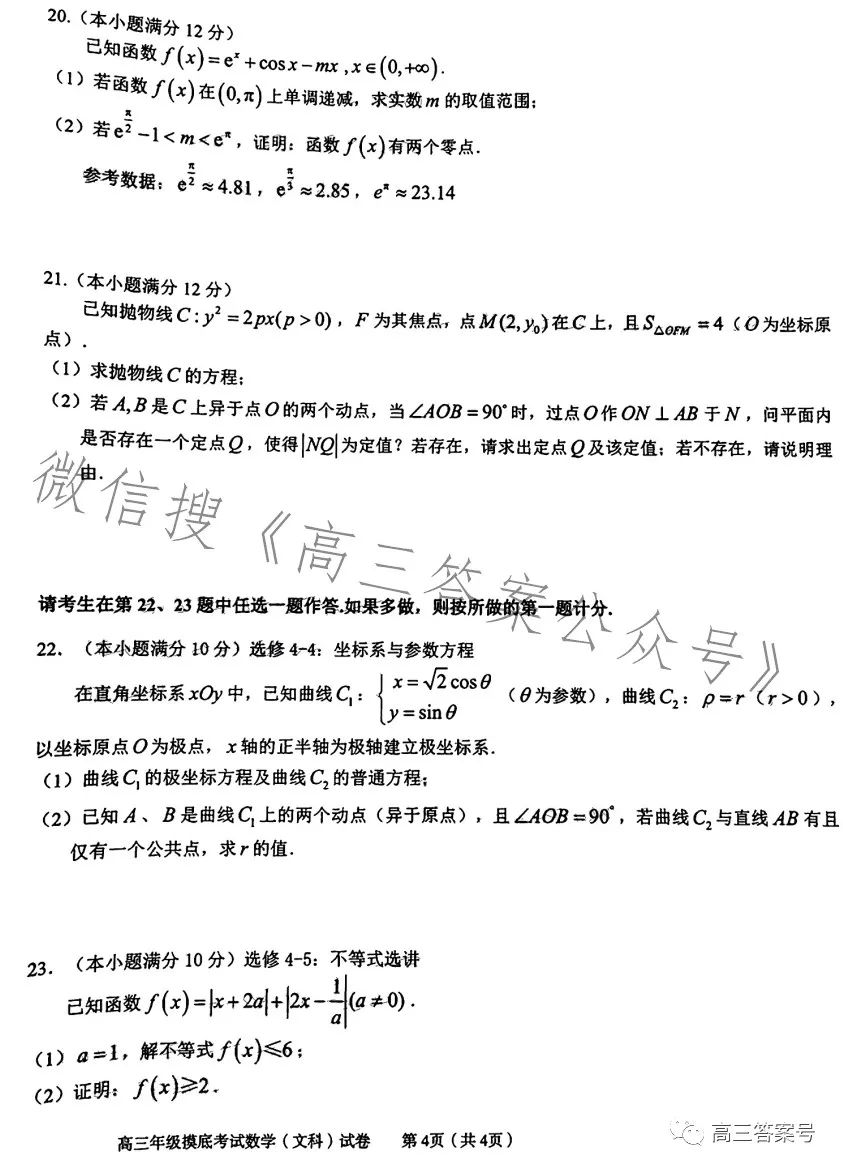 20.（本小题满分 12 分）
已知函数 f(x)=eˣ+cosx−mx ,x∈(0,+∞).
（1）若函数 f(x)在(0,π)上单调递减，求实数m 的取值范围；
（2）若e^{π/2}−1<m<e^π，证明：函数 f(x)有两个零点.
参考数据：e^{π/2}≈4.81，e^{π/3}≈2.85，e^π≈23.14
21.（本小题满分 12 分）
已知抛物线C:y²=2px(p>0)，F 为其焦点，点M(2,y₀)在C上，且S△OFM=4（O为坐标原
点）.
（1）求抛物线C的方程；
（2）若A,B是C上异于点O的两个动点，当∠AOB=90°时，过点O作ON⊥AB于N，问平面内
是否存在一个定点Q，使得|NQ|为定值？若存在，请求出定点Q及该定值；若不存在，请说明理
由.
微信搜《高三答案公众号》
请考生在第 22、23 题中任选一题作答.如果多做，则按所做的第一题计分.
22.（本小题满分 10 分）选修 4-4：坐标系与参数方程
在直角坐标系xOy中，已知曲线C₁：{x=√2cosθ
y=sinθ（θ为参数），曲线C₂：ρ=r（r>0），
以坐标原点O为极点，x轴的正半轴为极轴建立极坐标系.
（1）曲线C₁的极坐标方程及曲线C₂的普通方程；
（2）己知A、B是曲线C₁上的两个动点（异于原点），且∠AOB=90°，若曲线C₂与直线AB有且
仅有一个公共点，求r的值.
23.（本小题满分 10 分）选修 4-5：不等式选讲
已知函数f(x)=|x+2a|+|2x−1/a|(a≠0).
（1）a=1，解不等式f(x)⩽6；
（2）证明：f(x)⩾2.
高三年级摸底考试数学（文科）试卷 第4页（共4页）
高三答案号